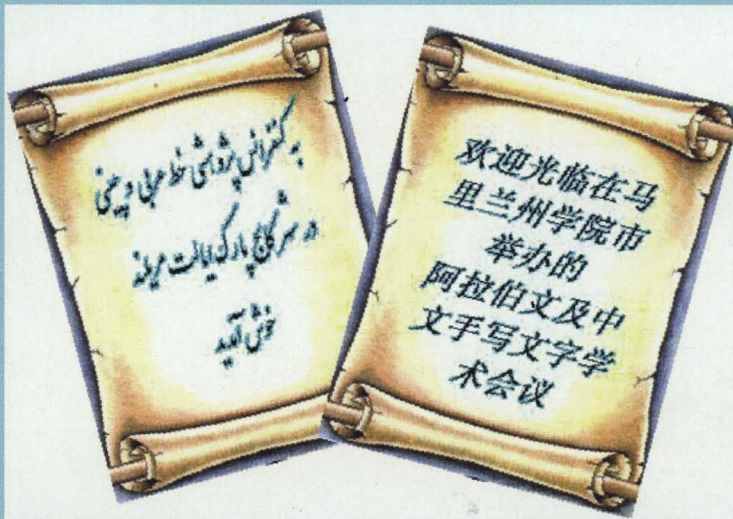 به کنفرانس پژوهشی خط عربی و چینی
در شهر کالج پارک ایالت مریلند
خوش آمدید
欢迎光临在马
里兰州学院市
举办的
阿拉伯文及中
文手写文字学
术会议